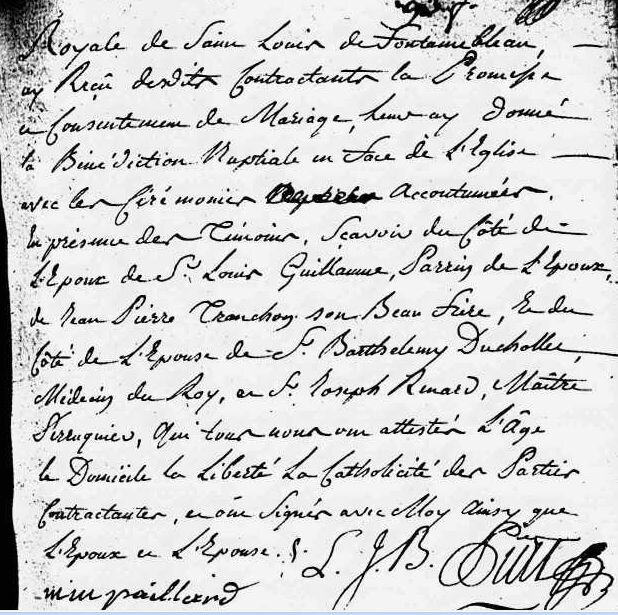 Royale de Saint Louis de Fontainebleau,
ay Reçû desdits Contractants la Promesse
et Consentement de Mariage, leur ay donné
la Bénédiction Nuptiale en face de L'Eglise
avec les Cérémonies Accoutumées.
En présence des Témoins, Scavoir du Côté de
L'Epoux de Sr. Louis Guillaume, Parrin de L'Epoux,
de Jean Pierre Tranchoy son Beau frère, Et du
Côté de L'Epouse de Sr. Barthelemy Duchollei,
Médecin du Roy, et Sr. Joseph Renard, Maître
Perruquier, Qui tous nous ont attestés L'Âge
le Domicile la Liberté La Catholicité des Parties
Contractantes, et ont Signés avec Moy Ainsy que
L'Epoux et L'Epouse. L. J. B.
paillard